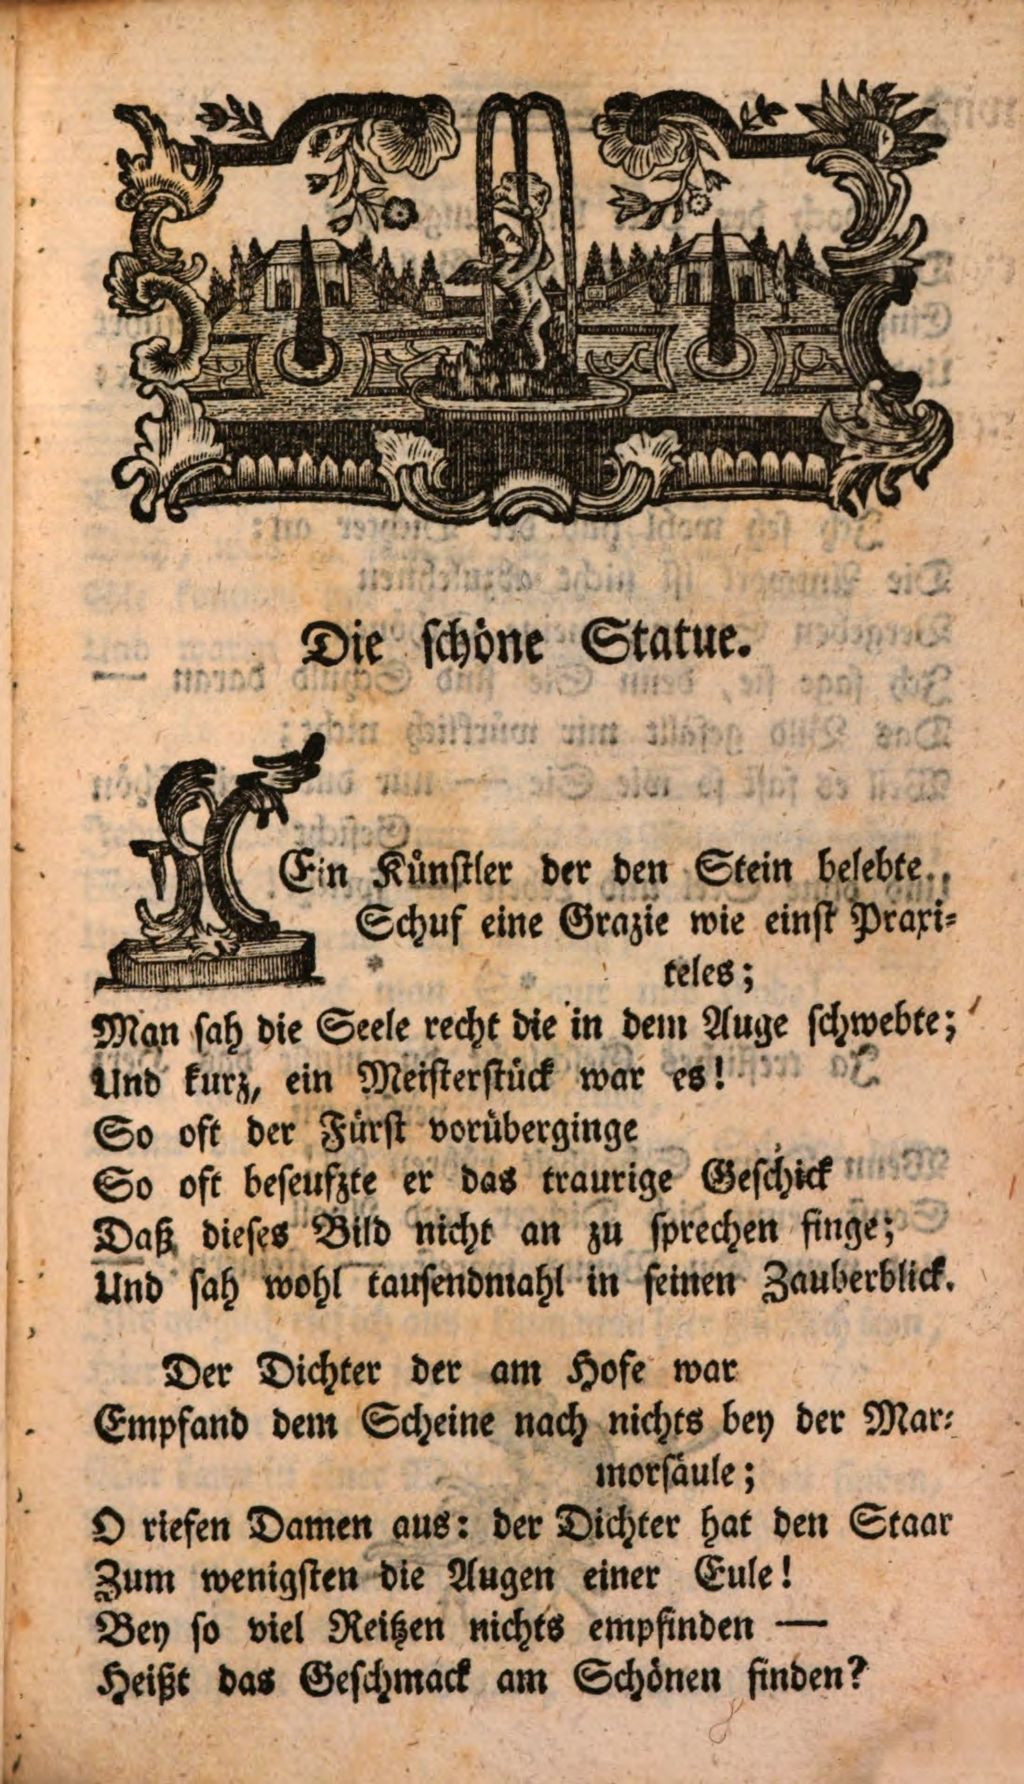 Die schöne Statue.
Ein Künstler der den Stein belebte,
Schuf eine Grazie wie einst Praxi-
teles;
Man sah die Seele recht die in dem Auge schwebte;
Und kurz, ein Meisterstück war es!
So oft der Fürst vorüberginge
So oft beseufzte er das traurige Geschick
Daß dieses Bild nicht an zu sprechen finge;
Und sah wohl tausendmahl in seinen Zauberblick.
Der Dichter der am Hofe war
Empfand dem Scheine nach nichts bey der Mar-
morsäule;
O riefen Damen aus: der Dichter hat den Staar
Zum wenigsten die Augen einer Eule!
Bey so viel Reitzen nichts empfinden —
Heißt das Geschmack am Schönen finden?